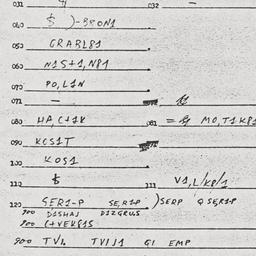 031 032 —
040 $ )-BRON1
050 GRABL81
060 N1S+1,N81
070 PO,L1N
071 —
080 HA,C+1K 081 = MO,T1K81
090 KCS1T
100 KOS1
110 $ 111 V1,L/K8/1
120 SER1-P SE,R1P )SERP QSER1P
900 D1SHAJ D1ZGRUS
900 C+VEK81S
900 TV1. TV1J1 G1 EMP